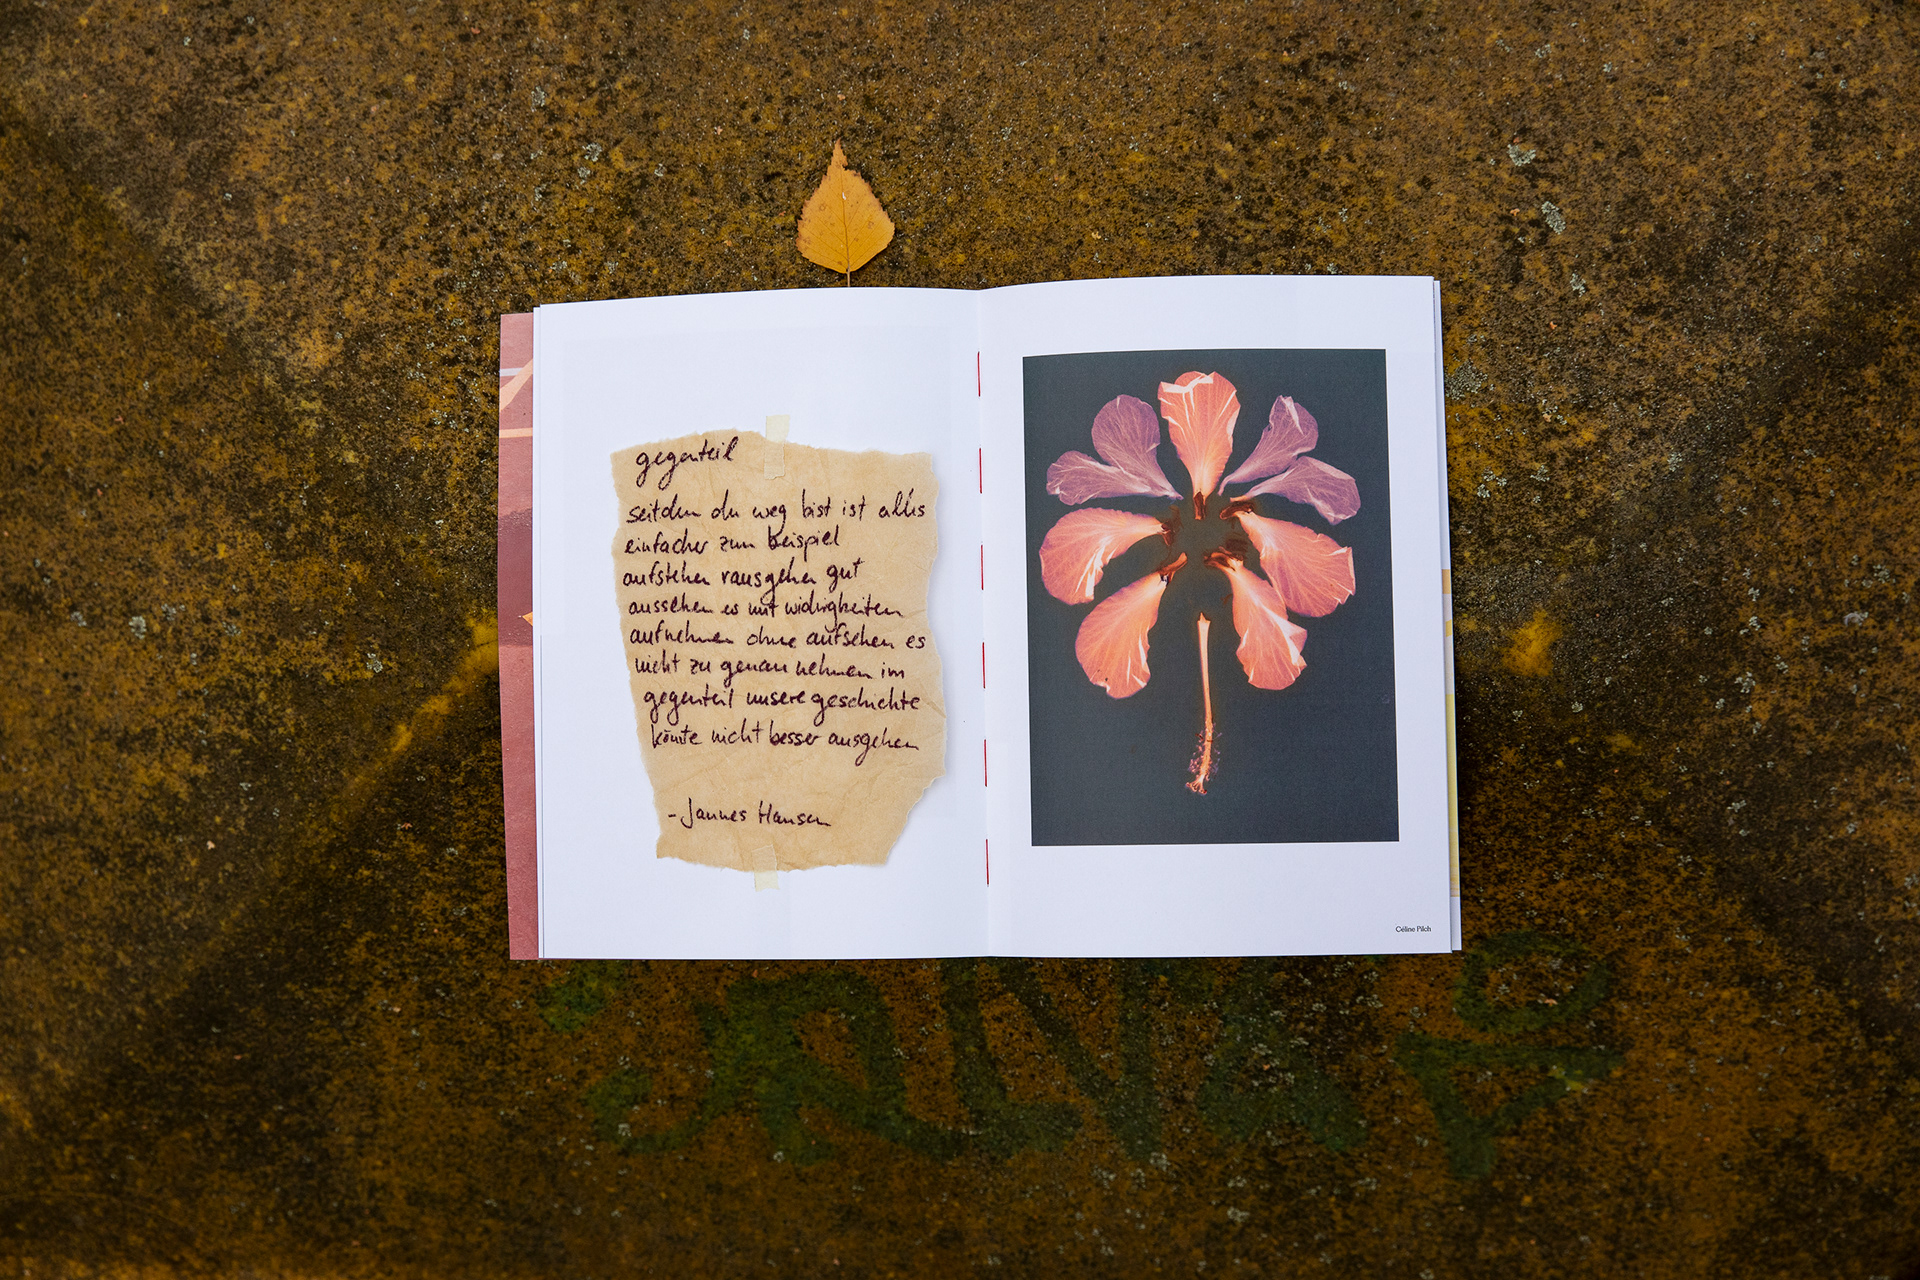 gegenteil
seitdem du weg bist ist alles
einfacher zum beispiel
aufstehen rausgehen gut
aussehen es mit widrigkeiten
aufnehmen ohne aufsehen es
nicht zu genau nehmen im
gegenteil unsere geschichte
könnte nicht besser ausgehen
- Jannes Hansen
Céline Pilch